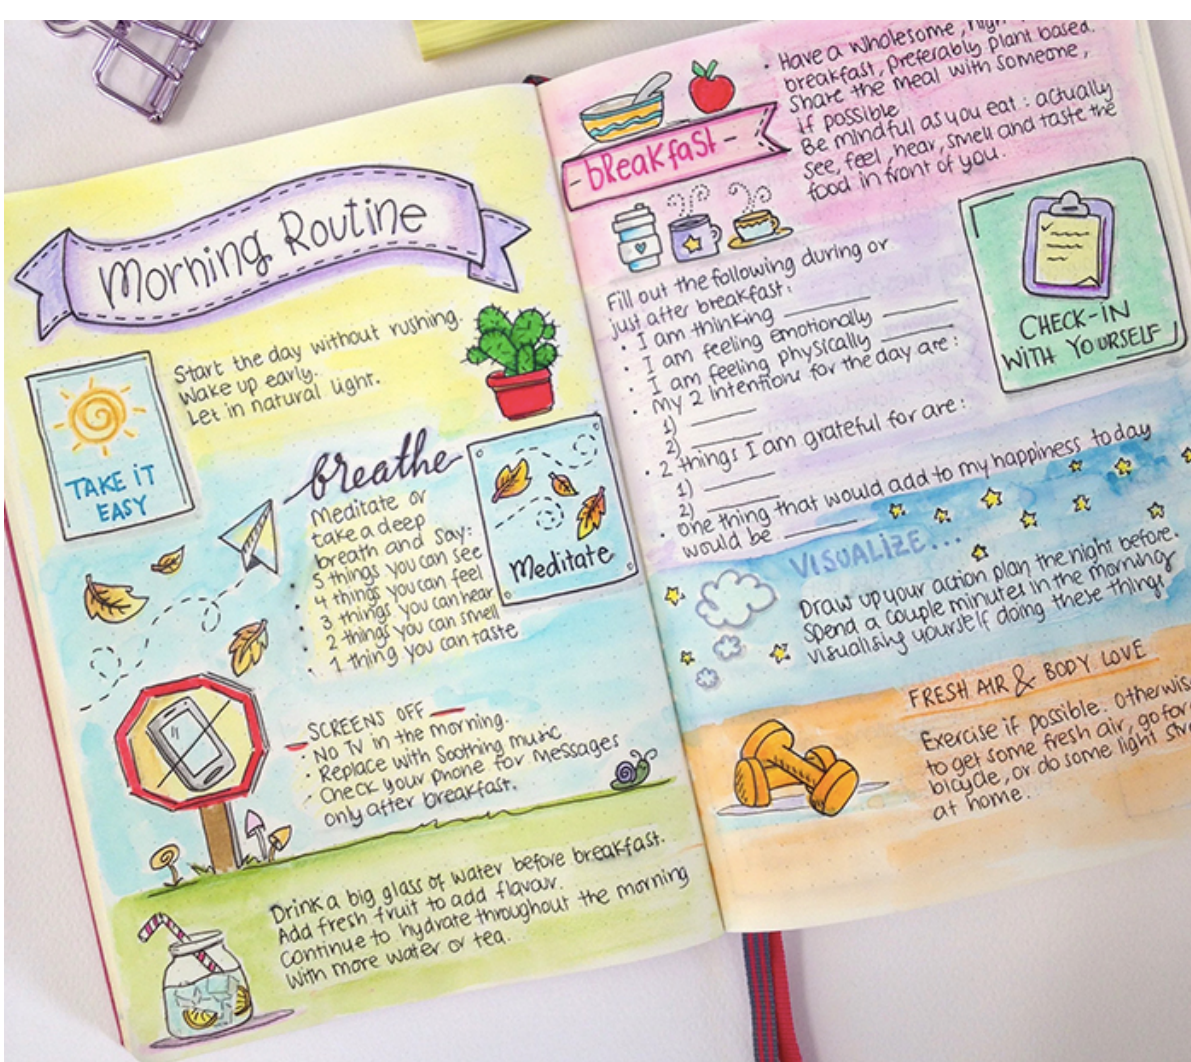 Morning Routine
Start the day without rushing.
Wake up early.
Let in natural light.
TAKE iT
EASY
breathe
Meditate or
take a deep
breath and say:
• 5 things you can see
• 4 things you can feel
• 3 things you can hear
• 2 things you can smell
• 1 thing you can taste
Meditate
SCREENS OFF
• No TV in the morning.
• Replace with Soothing music
• Check your phone for messages
only after breakfast.
Drink a big glass of water before breakfast.
Add fresh fruit to add flavour.
Continue to hydrate throughout the morning
with more water or tea.
- breakfast -
• Have a wholesome,
breakfast, preferably plant based.
Share the meal with someone,
if possible.
Be mindful as you eat: actually
see, feel, hear, smell and taste the
food in front of you.
CHECK-iN
WiTH YOURSELF
Fill out the following during or
just after breakfast:
• I am thinking
• I am feeling emotionally
• I am feeling physically
• my 2 intentions for the day are:
1)
2)
• 2 things I am grateful for are:
1)
2)
• one thing that would add to my happiness today
would be
VISUALIZE...
Draw up your action plan the night before.
Spend a couple minutes in the morning
visualising yourself doing these things
FRESH AIR & BODY LOVE
Exercise if possible.
to get some fresh air, go for
bicycle, or do some light
at home.